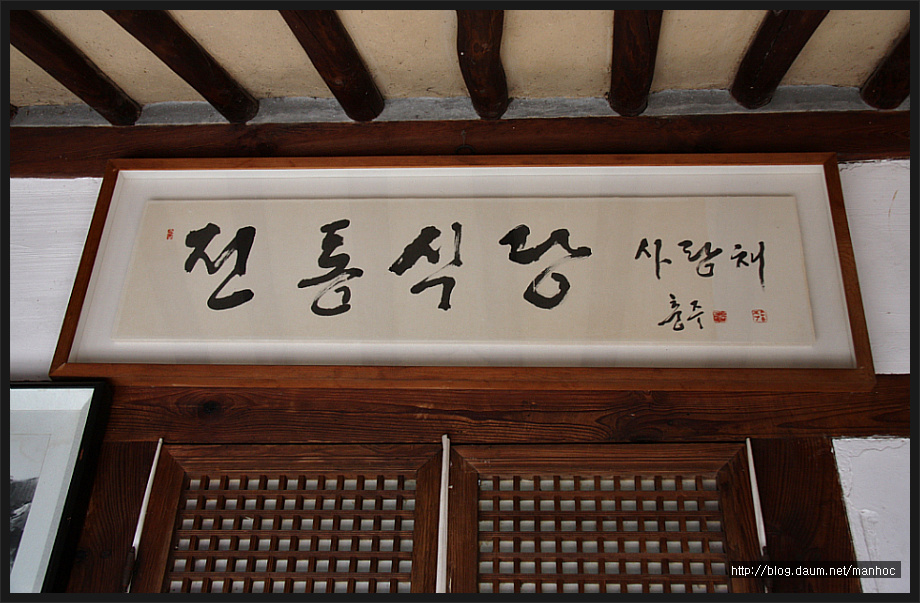 전통식당 사랑채
흠주
http://blog.daum.net/manhoc